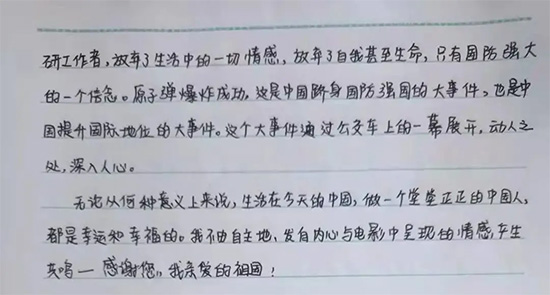 研工作者，放弃了生活中的一切情感，放弃了自我甚至生命，只有国防强大
的一个信念。原子弹爆炸成功，这是中国跻身国防强国的大事件，也是中
国提升国际地位的大事件。这个大事件通过公交车上的一幕展开，动人之
处，深入人心。
无论从何种意义上来说，生活在今天的中国，做一个堂堂正正的中国人，
都是幸运和幸福的。我不由自主地、发自内心与电影中呈现的情感，产生
共鸣一感谢您，我亲爱的祖国！